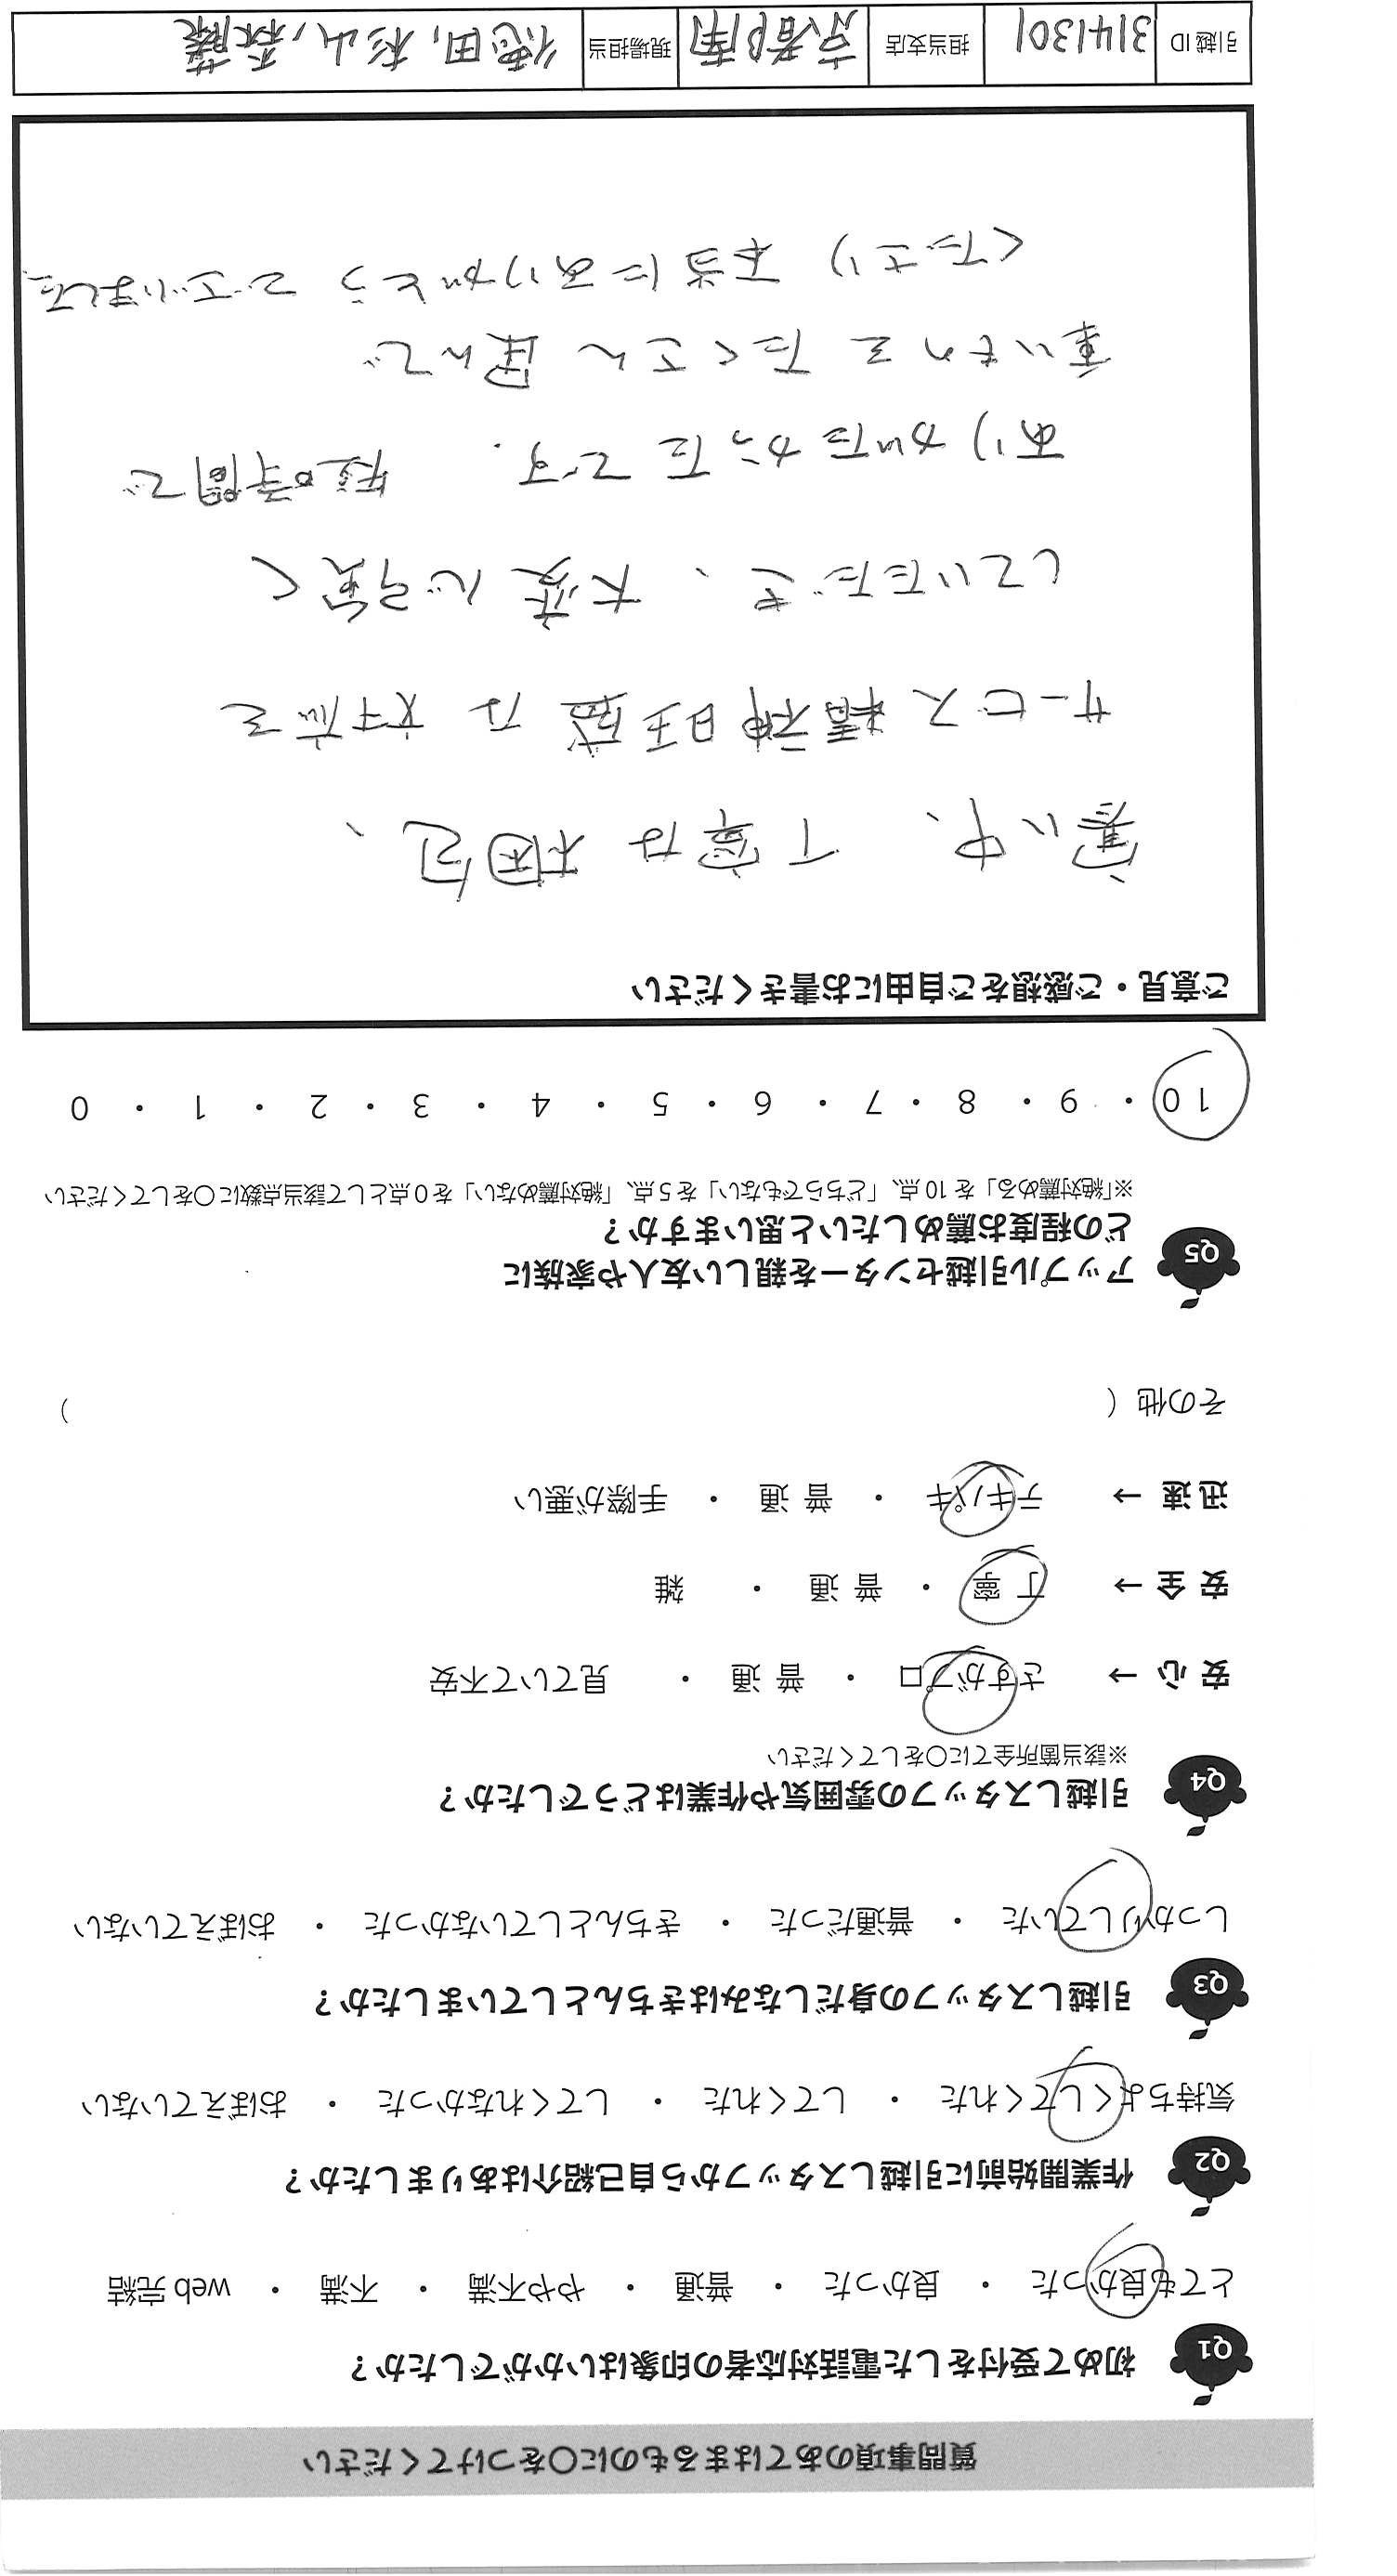 質問事項のあてはまるものに○をつけてください
Q1 初めて受付をした電話対応者の印象はいかがでしたか？
とても良かった ・ 良かった ・ 普通 ・ やや不満 ・ 不満 ・ web 完結
Q2 作業開始前に引越しスタッフから自己紹介はありましたか？
気持ちよくしてくれた ・ してくれた ・ してくれなかった ・ おぼえていない
Q3 引越しスタッフの身だしなみはきちんとしていましたか？
しっかりしていた ・ 普通だった ・ きちんとしていなかった ・ おぼえていない
Q4 引越しスタッフの雰囲気や作業はどうでしたか？
※該当箇所全てに○をしてください
安 心 → さすがプロ ・ 普 通 ・ 見ていて不安
安 全 → 丁 寧 ・ 普 通 ・ 雑
迅 速 → テキパキ ・ 普 通 ・ 手際が悪い
その他 （ ）
Q5 アップル引越センターを親しい友人や家族に
どの程度お薦めしたいと思いますか？
※「絶対薦める」を 10 点、「どちらでもない」を 5 点、「絶対薦めない」を 0 点として該当点数に○をしてください
10 ・ 9 ・ 8 ・ 7 ・ 6 ・ 5 ・ 4 ・ 3 ・ 2 ・ 1 ・ 0
ご意見・ご感想をご自由にお書きください
寒い中、丁寧な梱包、
サービス精神旺盛な対応を
していただき、大変心強く
ありがたかったです. 短時間で
重いものをたくさん運んで
くださり 本当にありがとうございました
引越 ID 3141301 担当支店 京都南 現場担当 徳田, 杉山, 森藤